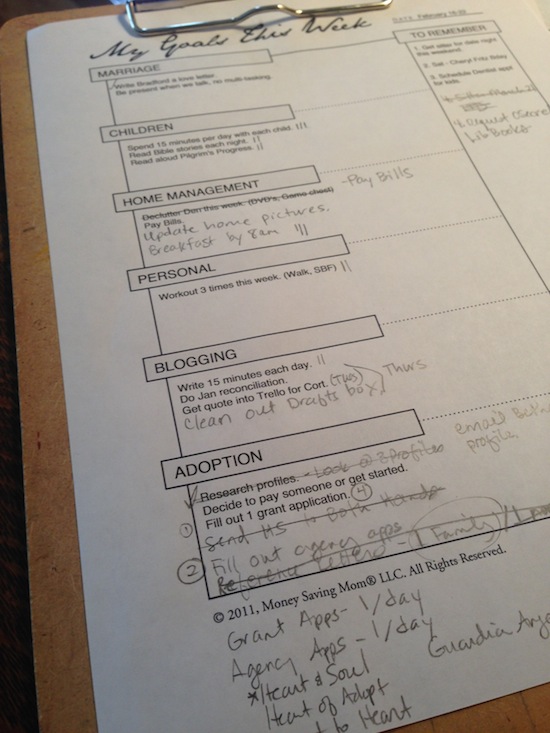 My Goals This Week
DATE February 16-22
TO REMEMBER
1. Get sitter for date night
this weekend.
2. Sat - Cheryl Fritz Bday
3. Schedule Dentist appt
for kids.
4. Request
Lib Books
MARRIAGE
Write Bradford a love letter.
Be present when we talk, no multi-tasking.
CHILDREN
Spend 15 minutes per day with each child. |||
Read Bible stories each night. ||
Read aloud Pilgrim's Progress. ||
HOME MANAGEMENT
Declutter Den this week. (DVD's, Game chest) - Pay Bills
Pay Bills.
Update home pictures.
Breakfast by 8am |||
PERSONAL
Workout 3 times this week. (Walk, SBF) ||
BLOGGING
Write 15 minutes each day. ||
Do Jan reconciliation.
Get quote into Trello for Cort. (Tues) Thurs
Clean out Drafts box.
ADOPTION
Research profiles. - Look @ 3 Profiles email
profile.
Decide to pay someone or get started.
Fill out 1 grant application. 4
1 Send HS to Both Hands
2 Fill out agency apps
Reference Letters - 1 Family /
© 2011, Money Saving Mom® LLC. All Rights Reserved.
Grant Apps - 1/day
Agency Apps - 1/day
*Heart & Soul
Heart of Adopt
to Heart